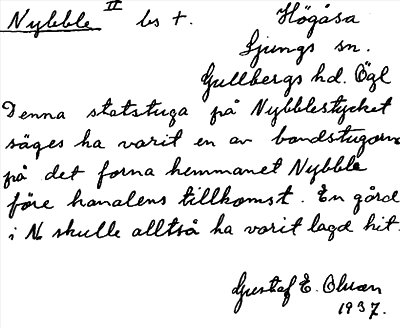 Nybble II bs +. Högåsa
Ljungs sn.
Gullbergs hd. Ögl
Denna statstuga på Nybblestycket
säges ha varit en av bondstugorna
på det forna hemmanet Nybble
före kanalens tillkomst. En gård
i N. skulle alltså ha varit lagd hit.
Gustaf E.
1937.